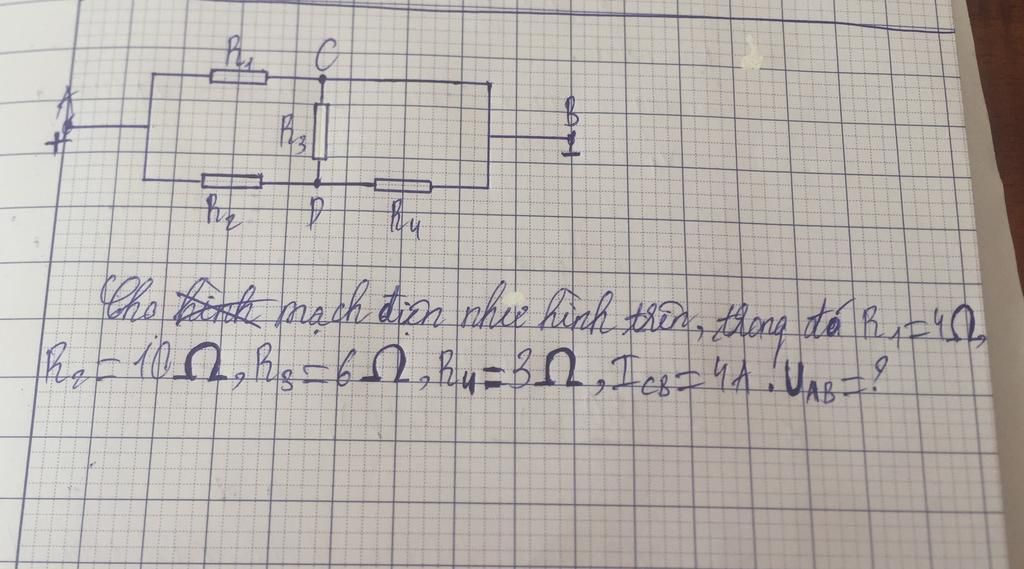 R₁ C
A B
+ R₃ -
R₂ D R₄
Cho mạch điện như hình trên, trong đó R₁=4Ω,
R₂=10Ω, R₃=6Ω, R₄=3Ω, I_CB=4A. U_AB=?